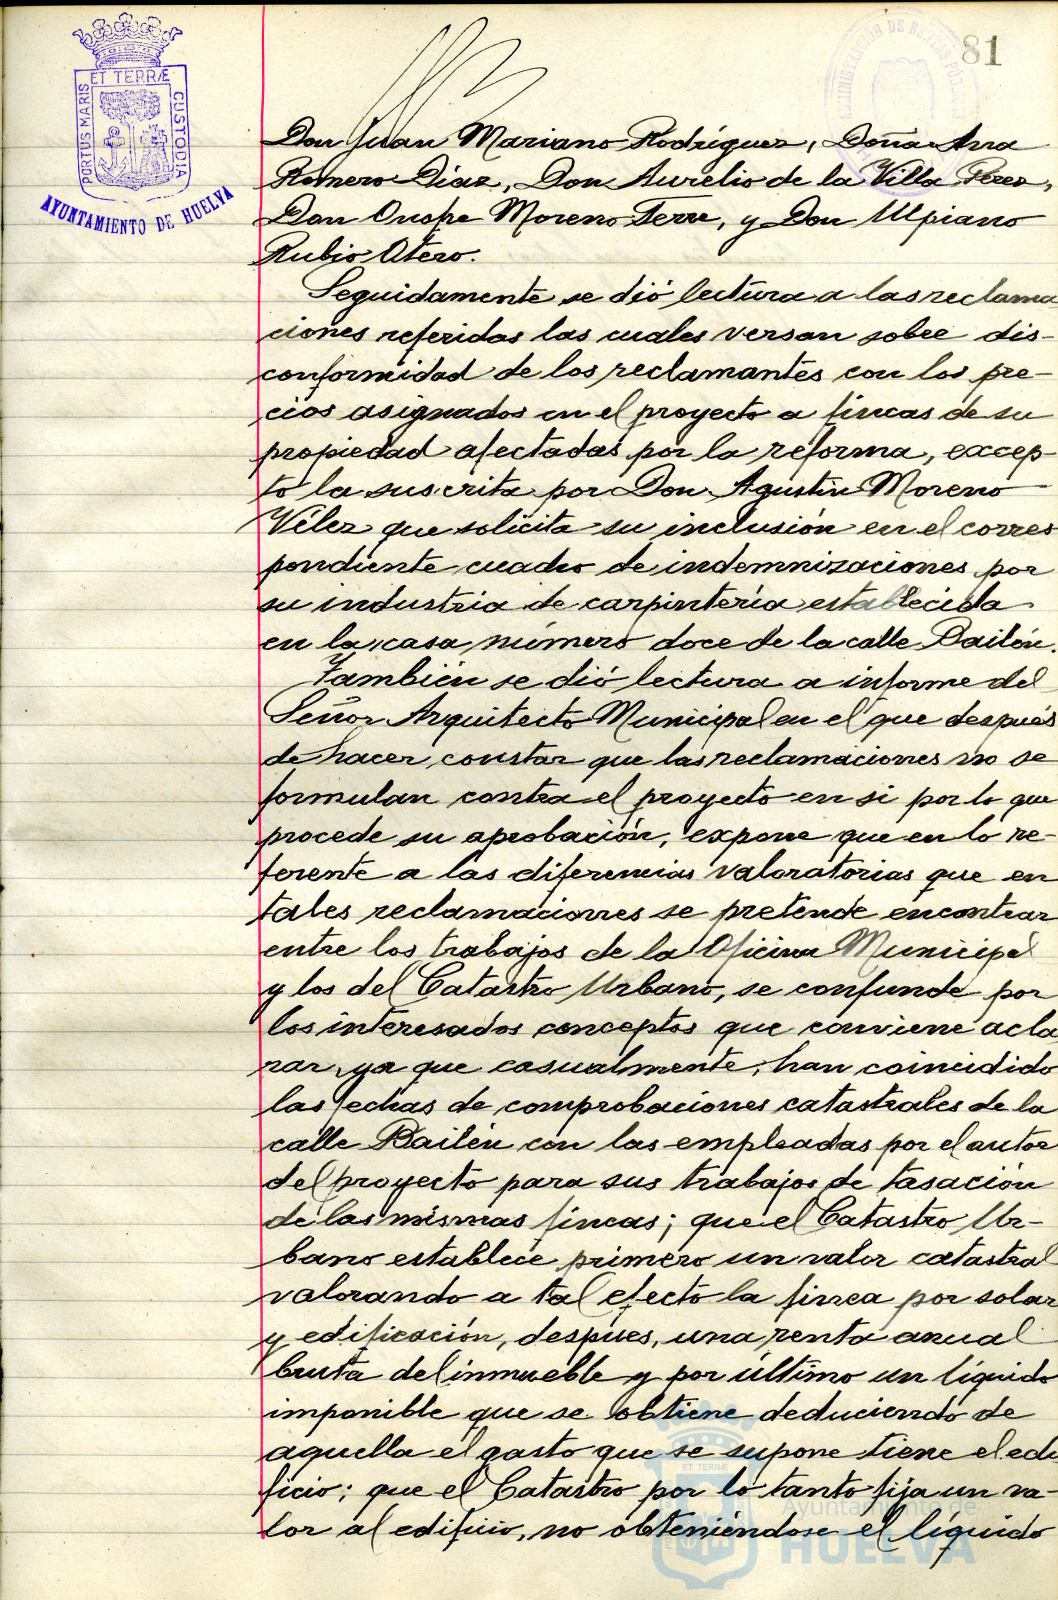 81
ET TERRÆ
PORTUS MARIS
CUSTODIA
AYUNTAMIENTO DE HUELVA
Don Juan Mariano Rodriguez, Doña Ana
Romero Diaz, Don Aurelio de la Villa Perez,
Don Onofre Moreno Terre, y Don Ulpiano
Rubio Otero.
Seguidamente se dió lectura a las reclama
ciones referidas las cuales versan sobre dis-
conformidad de los reclamantes con los pre-
cios asignados en el proyecto a fincas de su
propiedad afectadas por la reforma, excep-
to la suscrita por Don Agustin Moreno
Vélez que solicita su inclusión en el corres
pondiente cuadro de indemnizaciones por
su industria de carpinteria establecida
en la casa número doce de la calle Bailén.
También se dió lectura a informe del
Señor Arquitecto Municipal en el que después
de hacer constar que las reclamaciones no se
formulan contra el proyecto en si por lo que
procede su aprobación, expone que en lo re-
ferente a las diferencias valoratorias que en
tales reclamaciones se pretende encontrar
entre los trabajos de la Oficina Municipal
y los del Catastro Urbano, se confunde por
los interesados conceptos que conviene acla
rar, ya que casualmente, han coincidido
las fechas de comprobaciones catastrales de la
calle Bailén con las empleadas por el autor
del proyecto para sus trabajos de tasación
de las mismas fincas; que el Catastro Ur-
bano establece primero un valor catastral
valorando a tal efecto la finca por solar
y edificación, después, una renta anual
bruta del inmueble y por último un líquido
imponible que se obtiene deduciendo de
aquella el gasto que se supone tiene el edi
ficio; que el Catastro por lo tanto fija un va-
lor al edificio, no obteniéndose el líquido
Ayuntamiento de
HUELVA